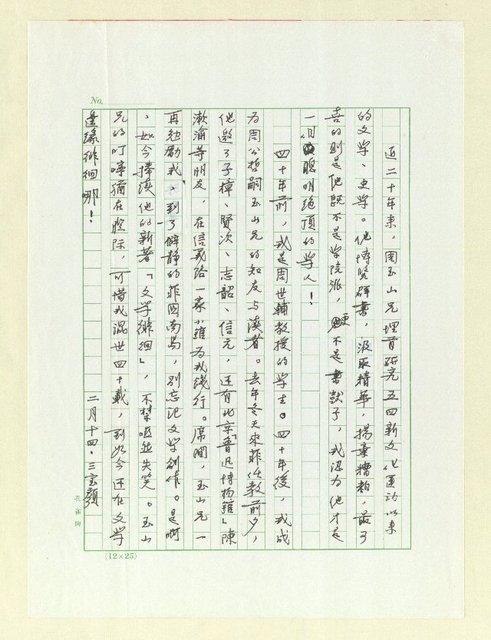 No.
近二十年來，周玉山兄埋首研究五四新文化運動以來
的文學、史學。他博覽群書，汲取精華，揚棄糟粕，最可
喜的則是他既不是學院派，更不是書獃子，我認為他才是
一個聰明絕頂的學人！
四十年前，我是周世輔教授的學生。四十年後，我成
為周公哲嗣玉山兄的知友與讀者。去年冬天來菲任教前夕，
他邀了子樟、賢次、志韶、信元，還有北京魯迅博物館陳
漱渝等朋友，在信義路一家小館為我餞行。席間，玉山兄一
再勉勵我，到了僻靜的菲國南島，別忘記文學創作。是啊
，如今捧讀他的新著「文學徘徊」，不禁啞然失笑。玉山
兄的叮嚀猶在腔際，可惜我混世四十載，到如今還在文學
邊緣徘徊哪！
二月十四．三寶顏
(12×25)